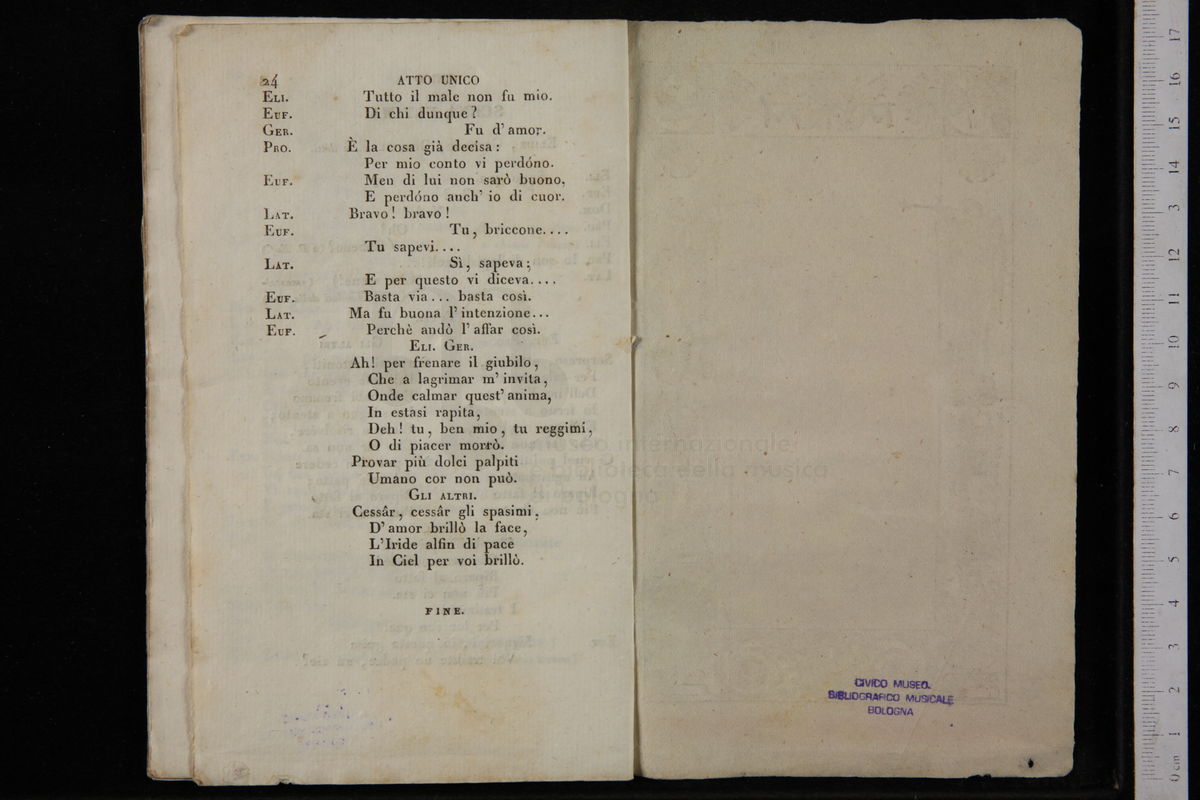 24 ATTO UNICO
ELI. Tutto il male non fu mio.
EUF. Di chi dunque?
GER. Fu d' amor.
PRO. È la cosa già decisa:
Per mio conto vi perdóno.
EUF. Men di lui non sarò buono,
E perdóno anch' io di cuor.
LAT. Bravo! bravo!
EUF. Tu, briccone....
Tu sapevi....
LAT. Sì, sapeva;
E per questo vi diceva....
EUF. Basta via... basta così.
LAT. Ma fu buona l' intenzione...
EUF. Perchè andò l' affar così.
ELI. GER.
Ah! per frenare il giubilo,
Che a lagrimar m' invita,
Onde calmar quest' anima,
In estasi rapita,
Deh! tu, ben mio, tu reggimi,
O di piacer morrò.
Provar più dolci palpiti
Umano cor non può.
GLI ALTRI.
Cessâr, cessâr gli spasimi,
D' amor brillò la face,
L'Iride alfin di pace
In Ciel per voi brillò.
FINE.
museo internazionale
e biblioteca della musica
di bologna
CIVICO MUSEO
BIBLIOGRAFICO MUSICALE
BOLOGNA
17
16
15
14
13
12
11
10
9
8
7
6
5
4
3
2
1
0 cm